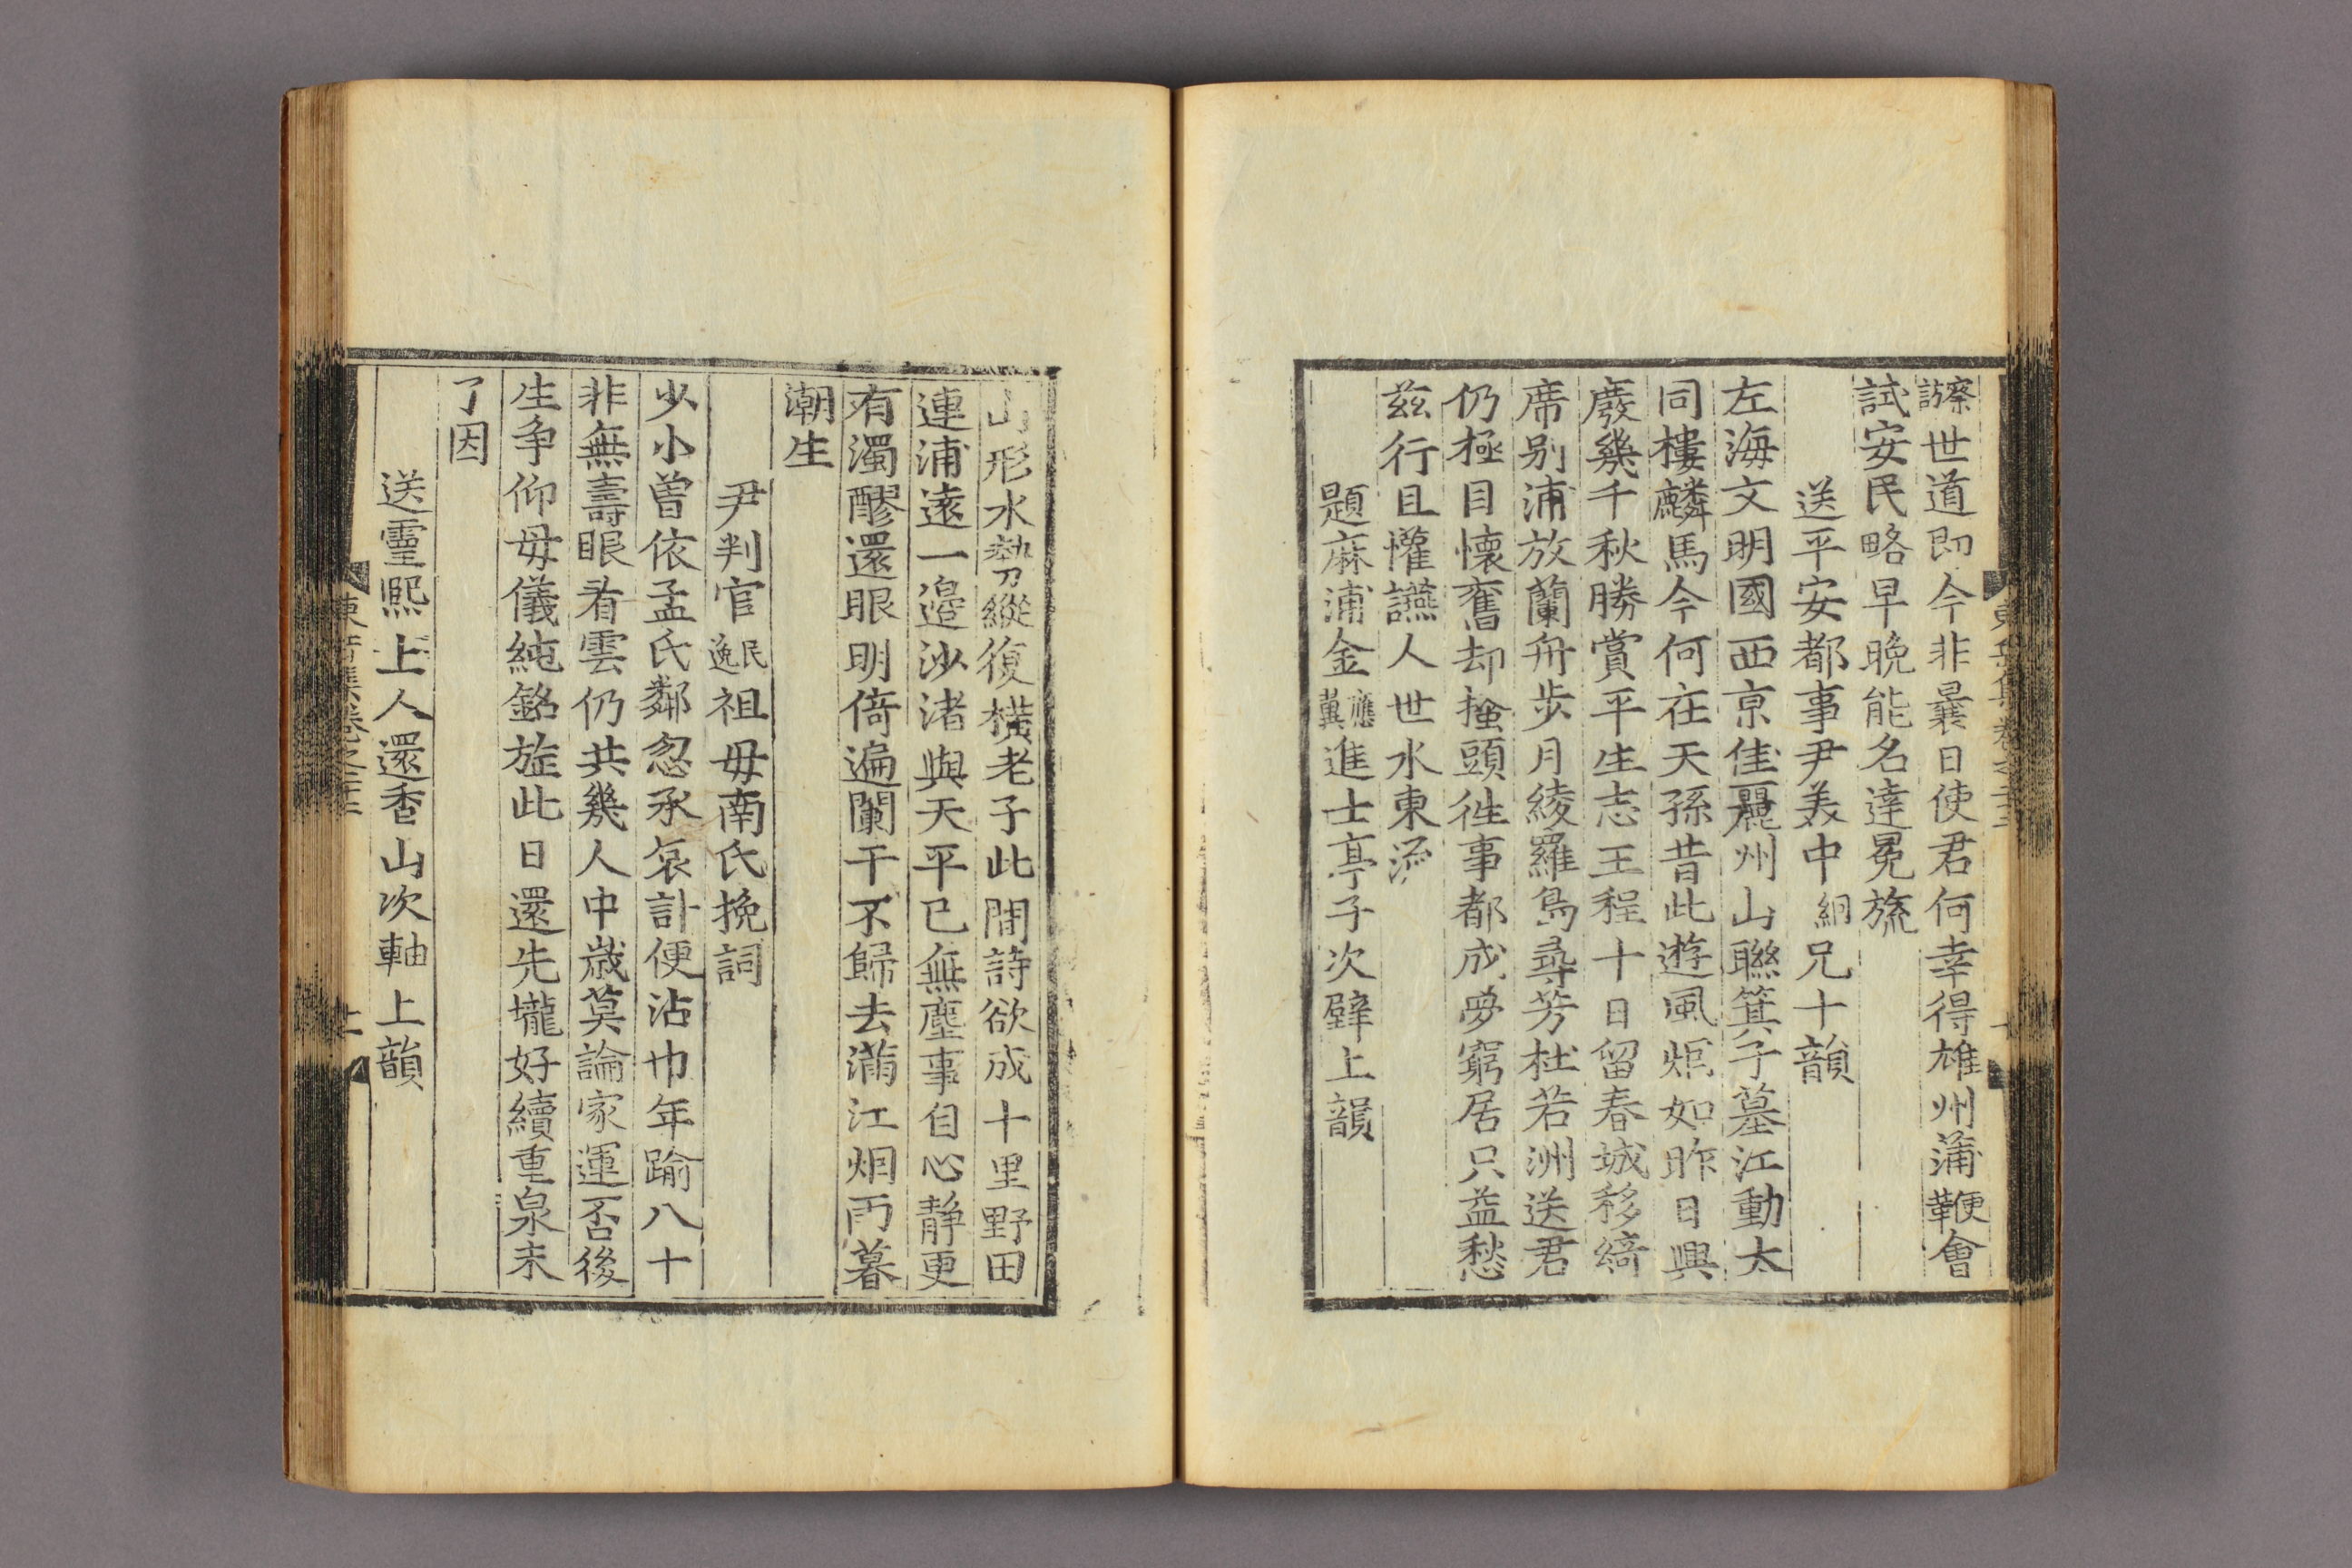 察訪世道即今非曩日使君何幸得雄州蒲鞭會
試安民略早晩能名達冕旒
送平安都事尹美中絅兄十韻
左海文明國西京佳麗州山聯箕子墓江動太
同樓麟馬今何在天孫昔此遊風烟如昨日興
廢幾千秋勝賞平生志王程十日留春城移綺
席别浦放蘭舟步月綾羅島尋芳杜若洲送君
仍極目懷舊却搔頭徃事都成夢窮居只益愁
兹行且懽讌人世水東流
題麻浦金應冀進士亭子次壁上韻
山形水勢縱復橫老子此間詩欲成十里野田
連浦遠一邉沙渚與天平已無塵事自心靜更
有濁醪還眼明倚遍闌干不歸去滿江烟雨暮
潮生
尹判官民逸祖母南氏挽詞
少小曾依孟氏鄰忽承哀訃便沾巾年踰八十
非無壽眼看雲仍共幾人中歲莫論家運否後
生争仰母儀純銘旌此日還先壠好續重泉未
了因
送靈熙上人還香山次軸上韻